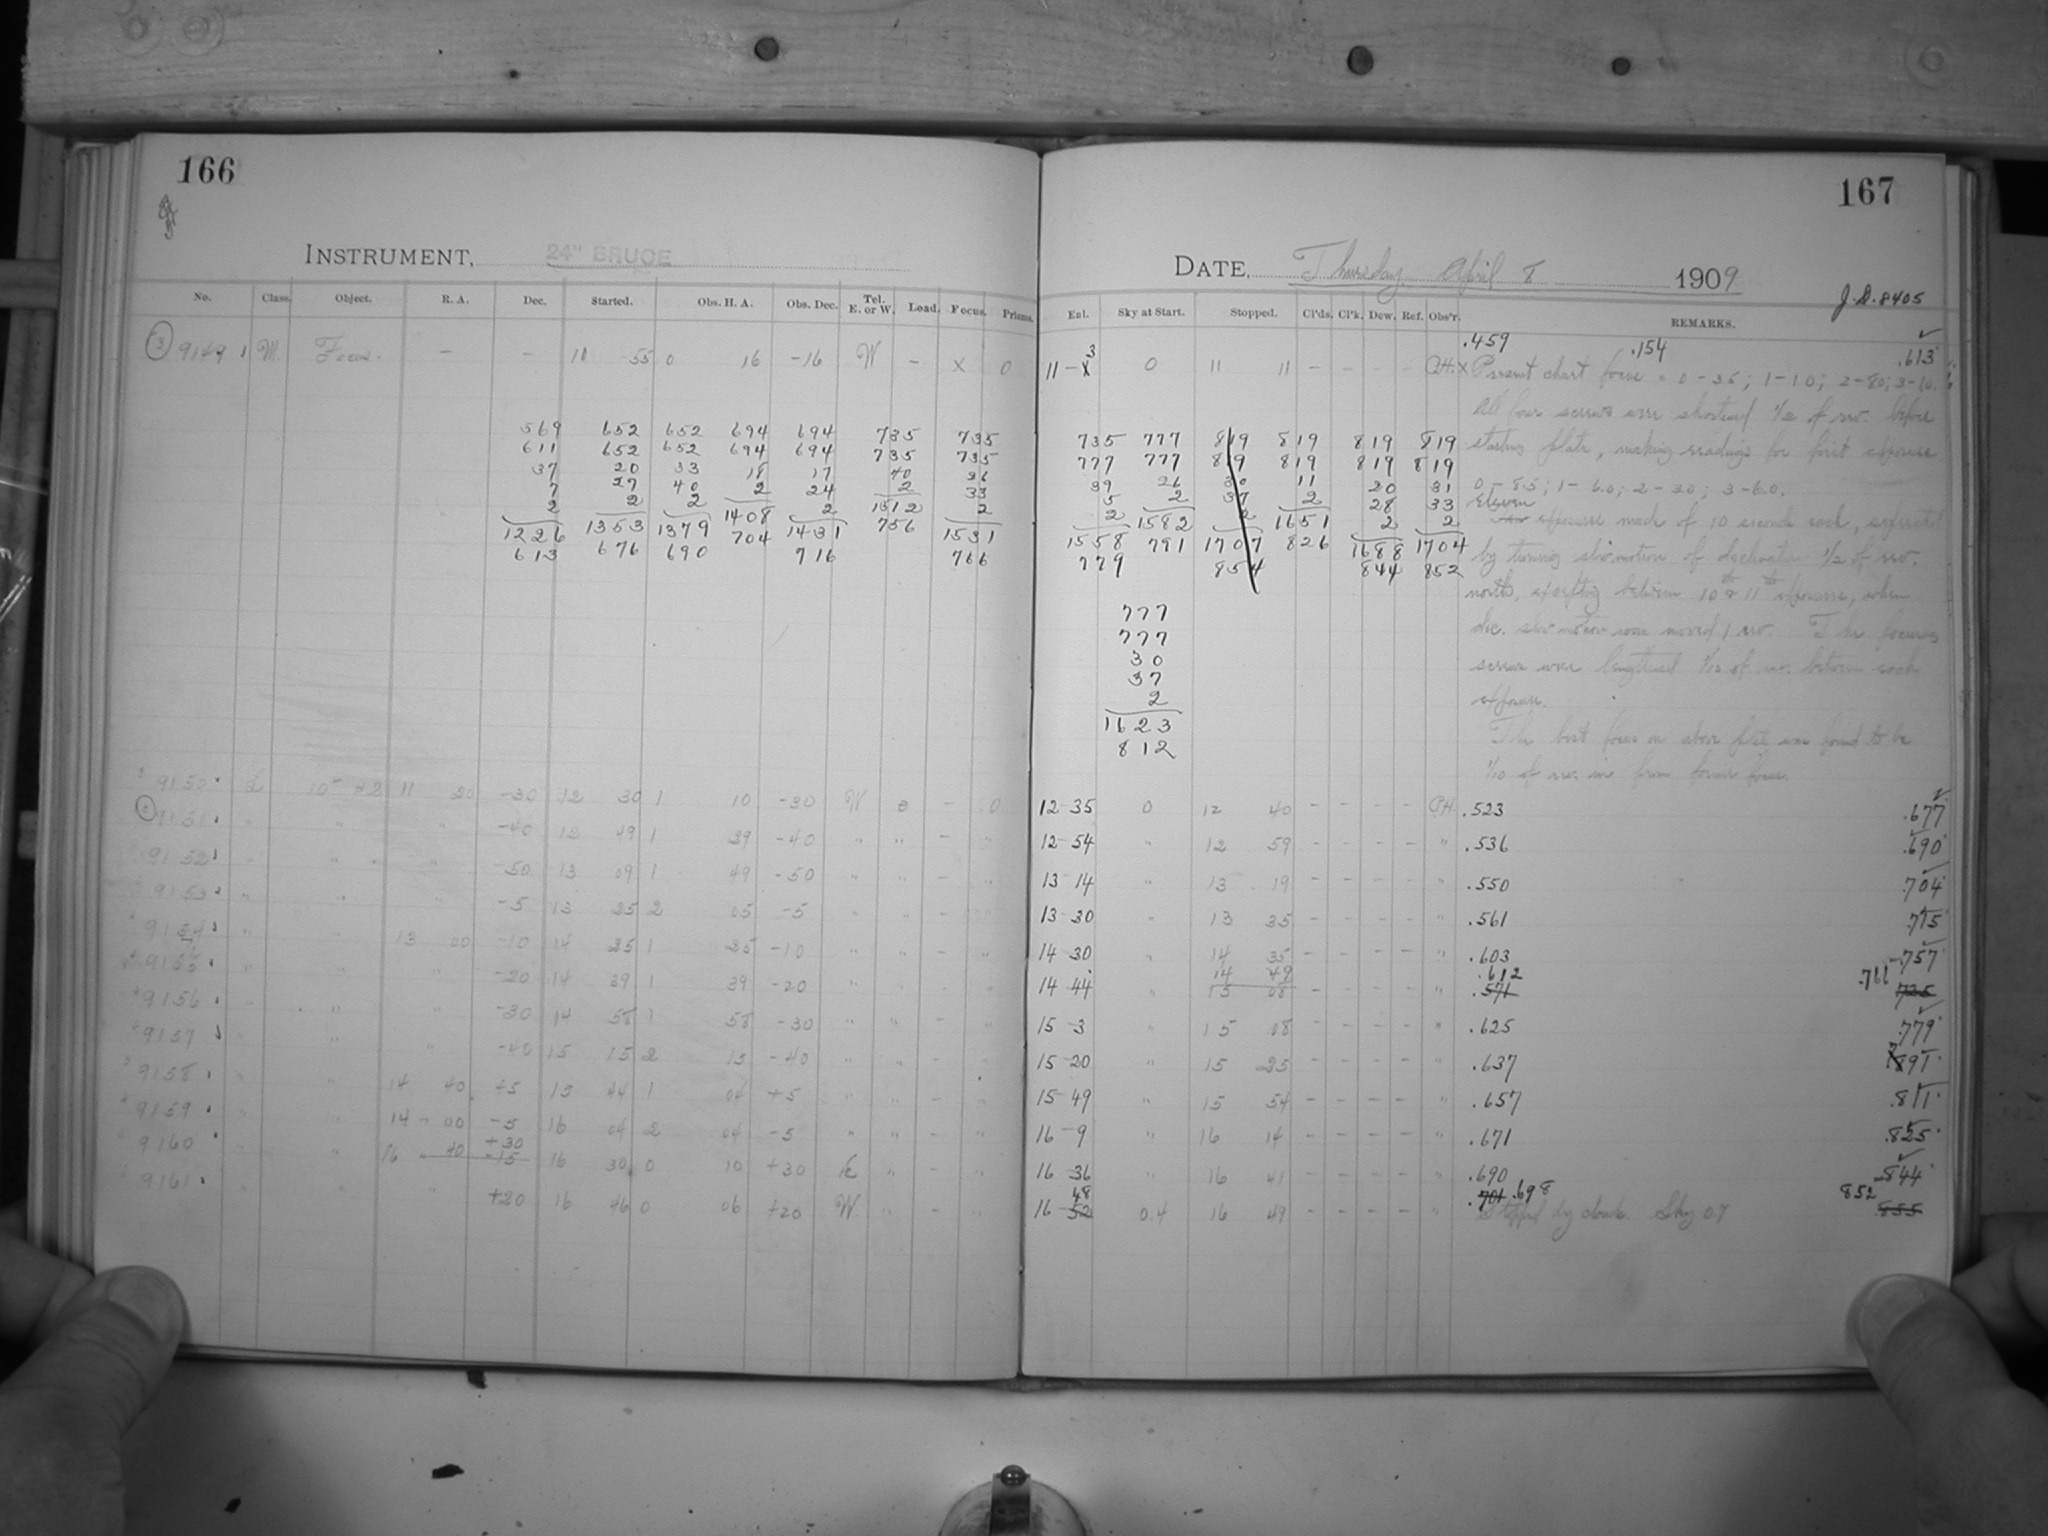 166
INSTRUMENT, 24" BRUCE
No. Class. Object. R. A. Dec. Started. Obs. H. A. Obs. Dec. Tel. E. or W. Load. Focus. Prisms.
3 9149 M. Focus. — — 11 55 0 16 -16 W — x 0
569 652 652 694 694 735 735
611 652 652 694 694 735 735
37 20 33 18 17 40 36
7 27 40 2 24 2 33
2 2 2 1408 2 1512 2
1226 1353 1379 704 1431 756 1531
613 676 690 716 766
9150 L 11 20 -30 12 30 1 10 -30 W 0 - 0
9151 " " " -40 12 49 1 29 -40 " " - "
9152 " " " -50 13 09 1 49 -50 " " - "
9153 " " -5 13 25 2 05 -5 " " - "
9154 " " 13 00 -10 14 25 1 25 -10 " " - "
9155 " " " -20 14 39 1 39 -20 " " - "
9156 " " " -30 14 58 1 58 -30 " " - "
9157 " " " -40 15 15 2 15 -40 " " - "
9158 " " 14 40 +5 15 44 1 04 +5 " " - "
9159 " " 14 00 -5 16 04 2 04 -5 " " - "
9160 " " 16 40 -15 +30 16 30 0 10 +30 E " - "
9161 " " " +20 16 46 0 06 +20 W " - "
167
DATE, Thursday, April 8 1909
J.D. 8405
Enl. Sky at Start. Stopped. Cl'ds. Cl'k. Dew. Ref. Obs'r. REMARKS.
.459 .154 .613
11-3 0 11 11 - - - - Present chart focus = 0-3.5; 1-1.0; 2-8.0; 3-1.0.
All four screws were shortened 1/2 of rev. before
starting plate, making readings for first exposure
0-8.5; 1-6.0; 2-3.0; 3-6.0.
Eleven exposures made of 10 seconds each, separated
by turning slow motion of declination 1/2 of rev.
north, excepting between 10th & 11th exposures, when
dec. slow motion were moved 1 rev. The focusing
screws were lengthened 1/10 of rev. between each
exposure.
The best focus on above plate was found to be
1/10 of rev. in from former focus.
735 777 819 819 819 819
777 777 819 819 819 819
39 26 30 11 20 31
5 2 37 2 28 33
2 1582 2 1651 2 2
1558 791 1707 826 1688 1704
779 854 844 852
777
777
30
37
2
1623
812
12-35 0 12 40 - - - - .523 .677
12-54 " 12 59 - - - - " .536 .690
13 14 " 13 19 - - - - " .550 .704
13-30 " 13 35 - - - - " .561 .715
14 30 " 14 35 - - - - " .603 .757
14 44 " 14 49 15 08 - - - - " .612 .571 .766 725
15-3 " 15 08 - - - - " .625 .779
15-20 " 15 25 - - - - " .637
15-49 " 15 54 - - - - " .657 .811
16-9 " 16 14 - - - - " .671 .825
16-36 " 16 41 - - - - " .690 .844
16-52 48 0.4 16 49 - - - - " .701 .698 852 855
Stopped by clouds. Sky 0.7